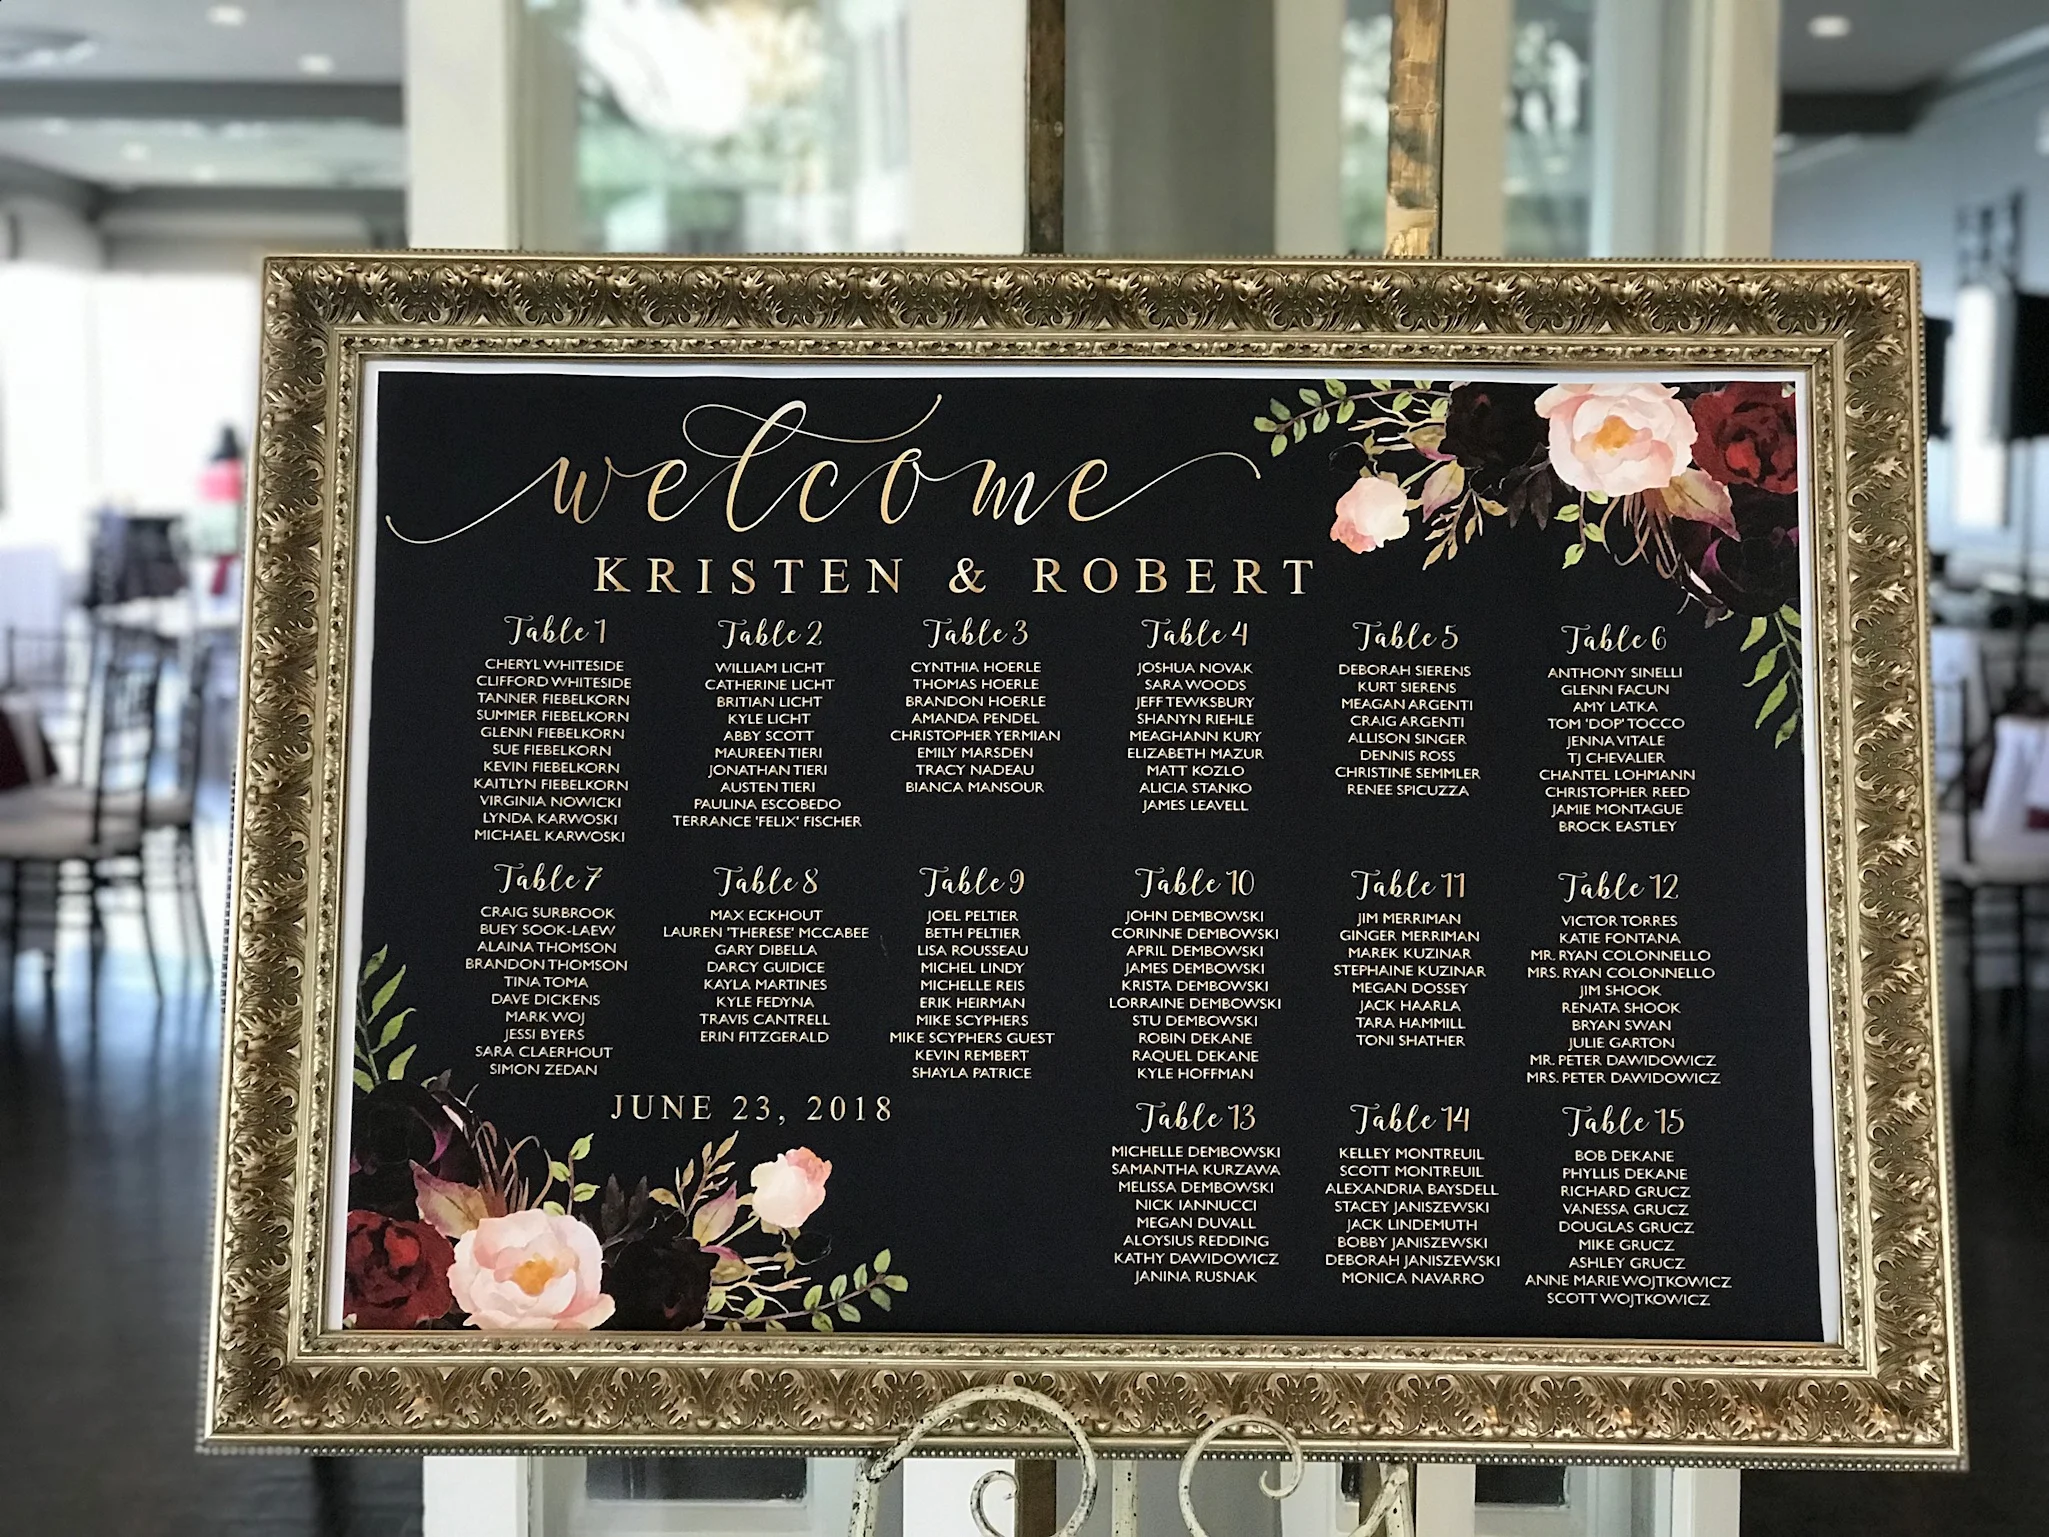 welcome
KRISTEN & ROBERT
Table 1
CHERYL WHITESIDE
CLIFFORD WHITESIDE
TANNER FIEBELKORN
SUMMER FIEBELKORN
GLENN FIEBELKORN
SUE FIEBELKORN
KEVIN FIEBELKORN
KAITLYN FIEBELKORN
VIRGINIA NOWICKI
LYNDA KARWOSKI
MICHAEL KARWOSKI
Table 2
WILLIAM LICHT
CATHERINE LICHT
BRITIAN LICHT
KYLE LICHT
ABBY SCOTT
MAUREEN TIERI
JONATHAN TIERI
AUSTEN TIERI
PAULINA ESCOBEDO
TERRANCE 'FELIX' FISCHER
Table 3
CYNTHIA HOERLE
THOMAS HOERLE
BRANDON HOERLE
AMANDA PENDEL
CHRISTOPHER YERMIAN
EMILY MARSDEN
TRACY NADEAU
BIANCA MANSOUR
Table 4
JOSHUA NOVAK
SARA WOODS
JEFF TEWKSBURY
SHANYN RIEHLE
MEAGHANN KURY
ELIZABETH MAZUR
MATT KOZLO
ALICIA STANKO
JAMES LEAVELL
Table 5
DEBORAH SIERENS
KURT SIERENS
MEAGAN ARGENTI
CRAIG ARGENTI
ALLISON SINGER
DENNIS ROSS
CHRISTINE SEMMLER
RENEE SPICUZZA
Table 6
ANTHONY SINELLI
GLENN FACUN
AMY LATKA
TOM 'DOP' TOCCO
JENNA VITALE
TJ CHEVALIER
CHANTEL LOHMANN
CHRISTOPHER REED
JAMIE MONTAGUE
BROCK EASTLEY
Table 7
CRAIG SURBROOK
BUEY SOOK-LAEW
ALAINA THOMSON
BRANDON THOMSON
TINA TOMA
DAVE DICKENS
MARK WOJ
JESSI BYERS
SARA CLAERHOUT
SIMON ZEDAN
Table 8
MAX ECKHOUT
LAUREN 'THERESE' MCCABEE
GARY DIBELLA
DARCY GUIDICE
KAYLA MARTINES
KYLE FEDYNA
TRAVIS CANTRELL
ERIN FITZGERALD
Table 9
JOEL PELTIER
BETH PELTIER
LISA ROUSSEAU
MICHEL LINDY
MICHELLE REIS
ERIK HEIRMAN
MIKE SCYPHERS
MIKE SCYPHERS GUEST
KEVIN REMBERT
SHAYLA PATRICE
Table 10
JOHN DEMBOWSKI
CORINNE DEMBOWSKI
APRIL DEMBOWSKI
JAMES DEMBOWSKI
KRISTA DEMBOWSKI
LORRAINE DEMBOWSKI
STU DEMBOWSKI
ROBIN DEKANE
RAQUEL DEKANE
KYLE HOFFMAN
Table 11
JIM MERRIMAN
GINGER MERRIMAN
MAREK KUZINAR
STEPHAINE KUZINAR
MEGAN DOSSEY
JACK HAARLA
TARA HAMMILL
TONI SHATHER
Table 12
VICTOR TORRES
KATIE FONTANA
MR. RYAN COLONNELLO
MRS. RYAN COLONNELLO
JIM SHOOK
RENATA SHOOK
BRYAN SWAN
JULIE GARTON
MR. PETER DAWIDOWICZ
MRS. PETER DAWIDOWICZ
JUNE 23, 2018
Table 13
MICHELLE DEMBOWSKI
SAMANTHA KURZAWA
MELISSA DEMBOWSKI
NICK IANNUCCI
MEGAN DUVALL
ALOYSIUS REDDING
KATHY DAWIDOWICZ
JANINA RUSNAK
Table 14
KELLEY MONTREUIL
SCOTT MONTREUIL
ALEXANDRIA BAYSDELL
STACEY JANISZEWSKI
JACK LINDEMUTH
BOBBY JANISZEWSKI
DEBORAH JANISZEWSKI
MONICA NAVARRO
Table 15
BOB DEKANE
PHYLLIS DEKANE
RICHARD GRUCZ
VANESSA GRUCZ
DOUGLAS GRUCZ
MIKE GRUCZ
ASHLEY GRUCZ
ANNE MARIE WOJTKOWICZ
SCOTT WOJTKOWICZ